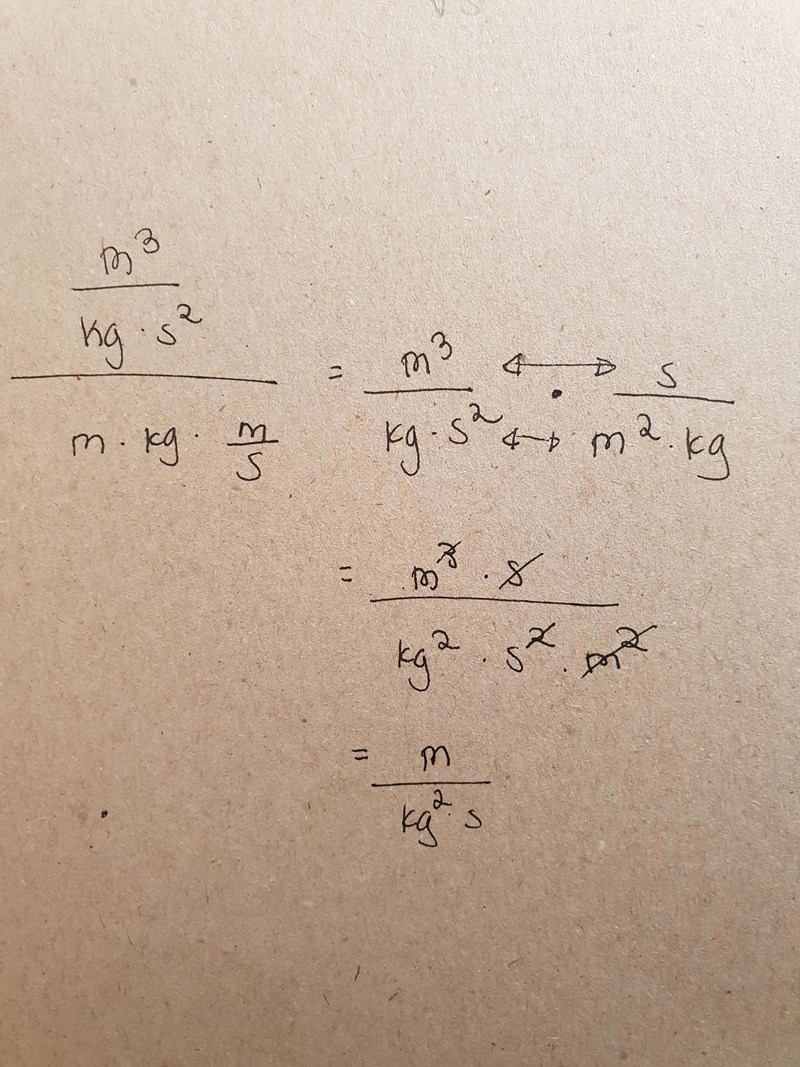 m³/(kg · s²) / (m · kg · m/s) = m³/(kg · s²) ↔ · ↔ s/(m² · kg)
= (m³ · s)/(kg² · s² · m²)
= m/(kg² · s)